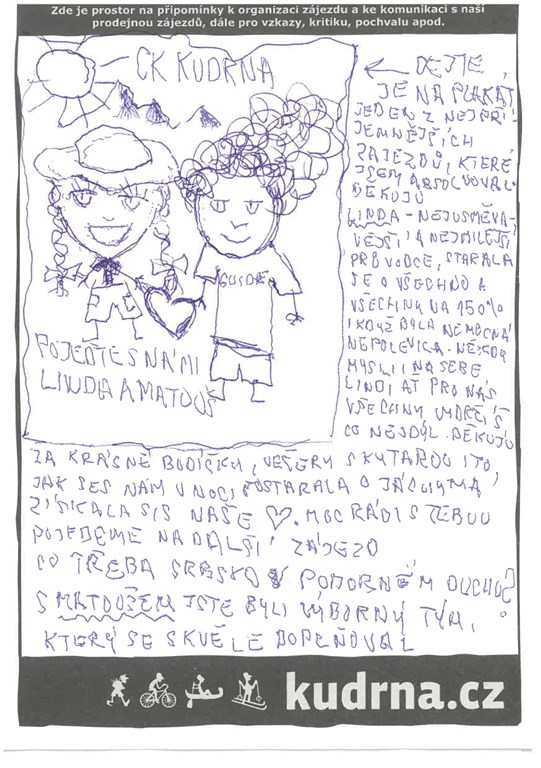 Zde je prostor na připomínky k organizaci zájezdu a ke komunikaci s naší
prodejnou zájezdů, dále pro vzkazy, kritiku, pochvalu apod.
CK KUDRNA
GUSCHE
POJEĎTE S NÁMI
LINDA A MATOUŠ
DEJTE
JE NA PLAKÁT
JEDEN Z NEJPŘÍ
JEMNĚJŠÍCH
ZÁJEZDŮ, KTERÉ
JSEM ABSOLVOVAL
DĚKUJU
LINDA - NEJUSMĚVA
VĚJŠÍ A NEJMILEJŠÍ
PRŮVODCE, STARALA
SE O VŠECHNO A
VŠECHNY NA 150%
I KDYŽ BYLA NEMOCNÁ
NEPOLEVILA. NĚKDY
MYSLI I NA SEBE
LINDI AŤ PRO NÁS
VŠECHNY VYDRŽÍŠ
CO NEJDÝL. DĚKUJU
ZA KRÁSNÉ BODÍČKY, VEČERY S KYTAROU I TO,
JAK SES NÁM V NOCI POSTARALA O JÁCHYMA
ZÍSKALA SIS NAŠE ♡. MOC RÁDI S TEBOU
POJEDEME NA DALŠÍ ZÁJEZD
CO TŘEBA SRBSKO V PODOBNÉM DUCHU?
S MATOUŠEM JSTE BYLI VÝBORNÝ TÝM,
KTERÝ SE SKVĚLE DOPLŇOVAL
kudrna.cz